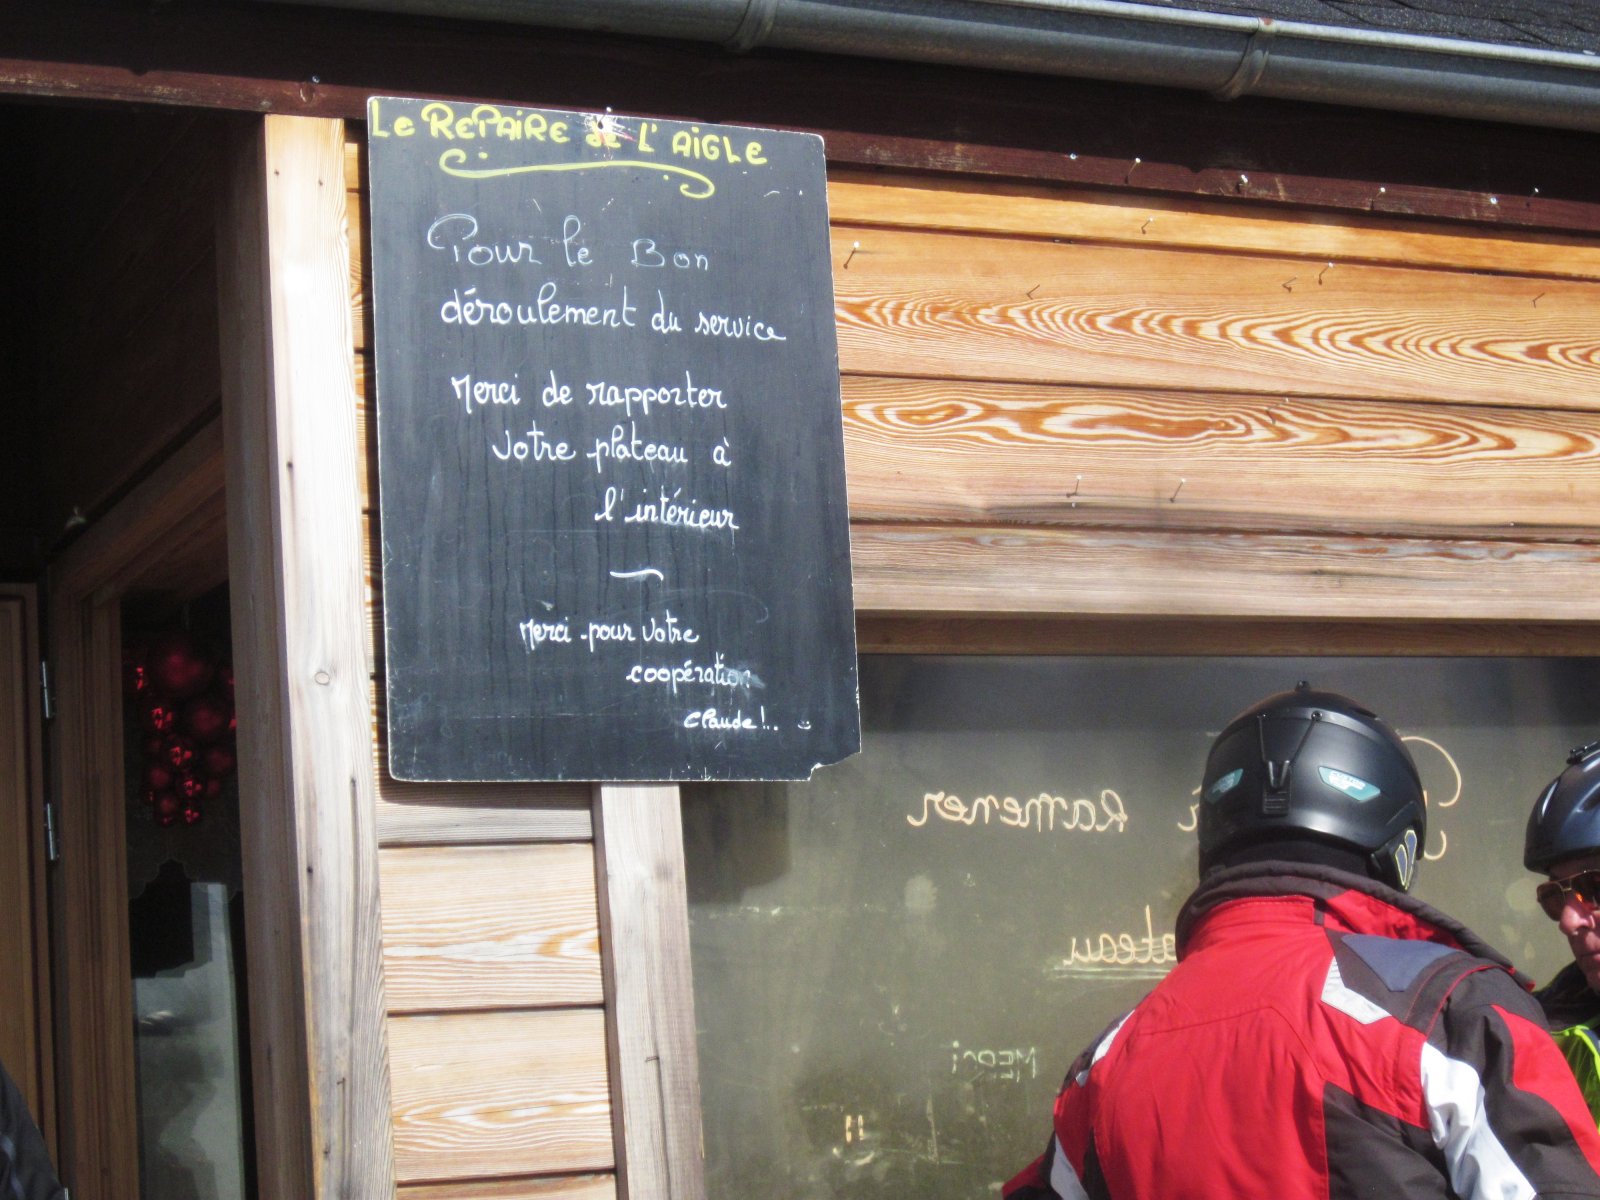 Le RePAiRe de L'AiGLe
Pour le Bon
déroulement du service
Merci de rapporter
votre plateau à
l'intérieur
Merci pour votre
coopération
Claude !..
Ramener
MERCi